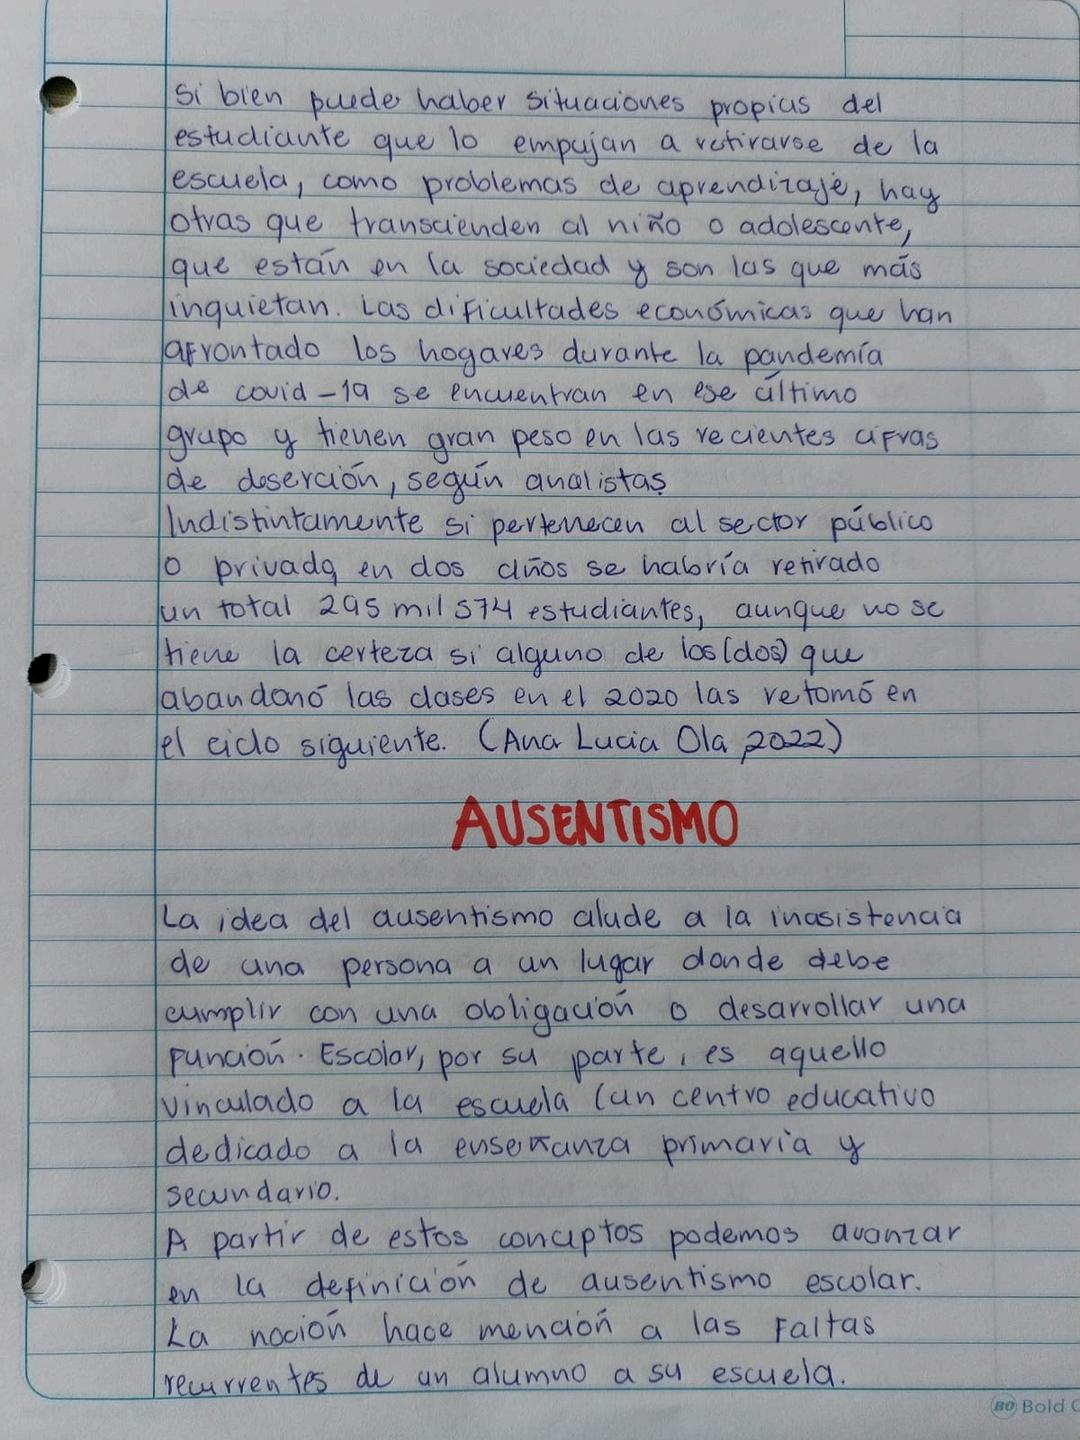 si bien puede haber situaciones propias del
estudiante que lo empujan a retirarse de la
escuela, como problemas de aprendizaje, hay
otras que transcienden al niño o adolescente,
que están en la sociedad y son las que más
inquietan. Las dificultades económicas que han
afrontado los hogares durante la pandemía
de covid-19 se encuentran en ese último
grupo y tienen gran peso en las recientes cifras
de deserción, según analistas
Indistintamente si pertenecen al sector público
o privado, en dos años se habría retirado
un total 295 mil 574 estudiantes, aunque no se
tiene la certeza si alguno de los (dos) que
abandonó las clases en el 2020 las retomó en
el ciclo siguiente. (Ana Lucia Ola, 2022)
AUSENTISMO
La idea del ausentismo alude a la inasistencia
de una persona a un lugar donde debe
cumplir con una obligación o desarrollar una
función. Escolar, por su parte, es aquello
vinculado a la escuela (un centro educativo
dedicado a la enseñanza primaria y
secundario.
A partir de estos conceptos podemos avanzar
en la definición de ausentismo escolar.
La noción hace mención a las Faltas
recurrentes de un alumno a su escuela.
BO Bold